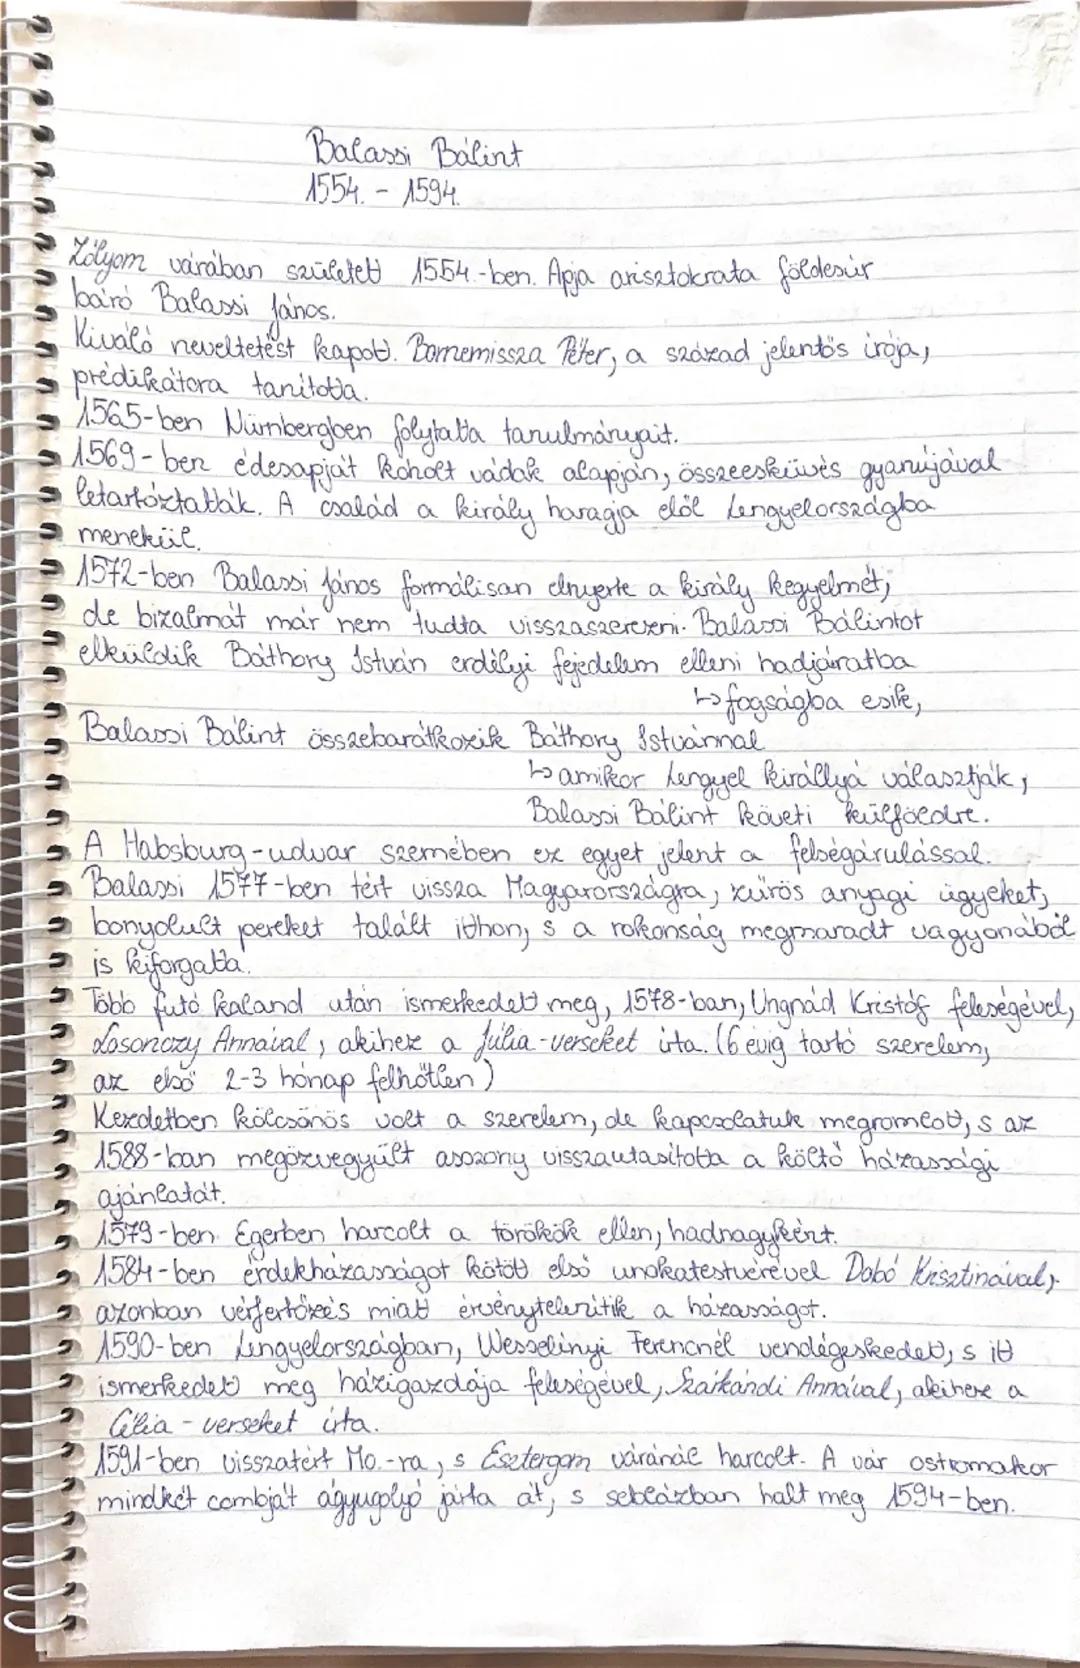 Balassi Bálint
1554. - 1594.
Zólyom várában született 1554.-ben. Apja arisztokrata földesúr
báró Balassi János.
Kiváló neveltetést kapott. Bornemissza Péter, a század jelentős írója,
prédikátora tanította.
1565-ben Nürnbergben folytatta tanulmányait.
1569-ben édesapját koholt vádak alapján, összeesküvés gyanújával
letartóztatták. A család a király haragja elől Lengyelországba
menekül.
1572-ben Balassi János formálisan elnyerte a király kegyelmét,
de bizalmát már nem tudta visszaszerezni. Balassi Bálintot
elküldik Báthory István erdélyi fejedelem elleni hadjáratba
↳ fogságba esik,
Balassi Bálint összebarátkozik Báthory Istvánnal
↳ amikor Lengyel királlyá választják,
Balassi Bálint követi külföldre.
A Habsburg-udvar szemében ez egyet jelent a felségárulással.
Balassi 1577-ben tért vissza Magyarországra, zűrös anyagi ügyeket,
bonyolult pereket talált itthon, s a rokonság megmaradt vagyonából
is kiforgatta.
Több futó kaland után ismerkedett meg, 1578-ban, Ungnád Kristóf feleségével,
Losonczy Annával, akihez a Júlia-verseket írta. (6 évig tartó szerelem,
az első 2-3 hónap felhőtlen)
Kezdetben kölcsönös volt a szerelem, de kapcsolatuk megromlott, s az
1588-ban megözvegyült asszony visszautasította a költő házassági
ajánlatát.
1579-ben Egerben harcolt a törökök ellen, hadnagyként.
1584-ben érdekházasságot kötött első unokatestvérével Dobó Krisztinával,
azonban vérfertőzés miatt érvénytelenítik a házasságot.
1590-ben Lengyelországban, Wesselényi Ferencnél vendégeskedett, s itt
ismerkedett meg házigazdája feleségével, Szárkándi Annával, akihez a
Célia - verseket írta.
1591-ben visszatért Mo.-ra, s Esztergom váránál harcolt. A vár ostromakor
mindkét combját ágyúgolyó járta át, s seblázban halt meg 1594-ben.